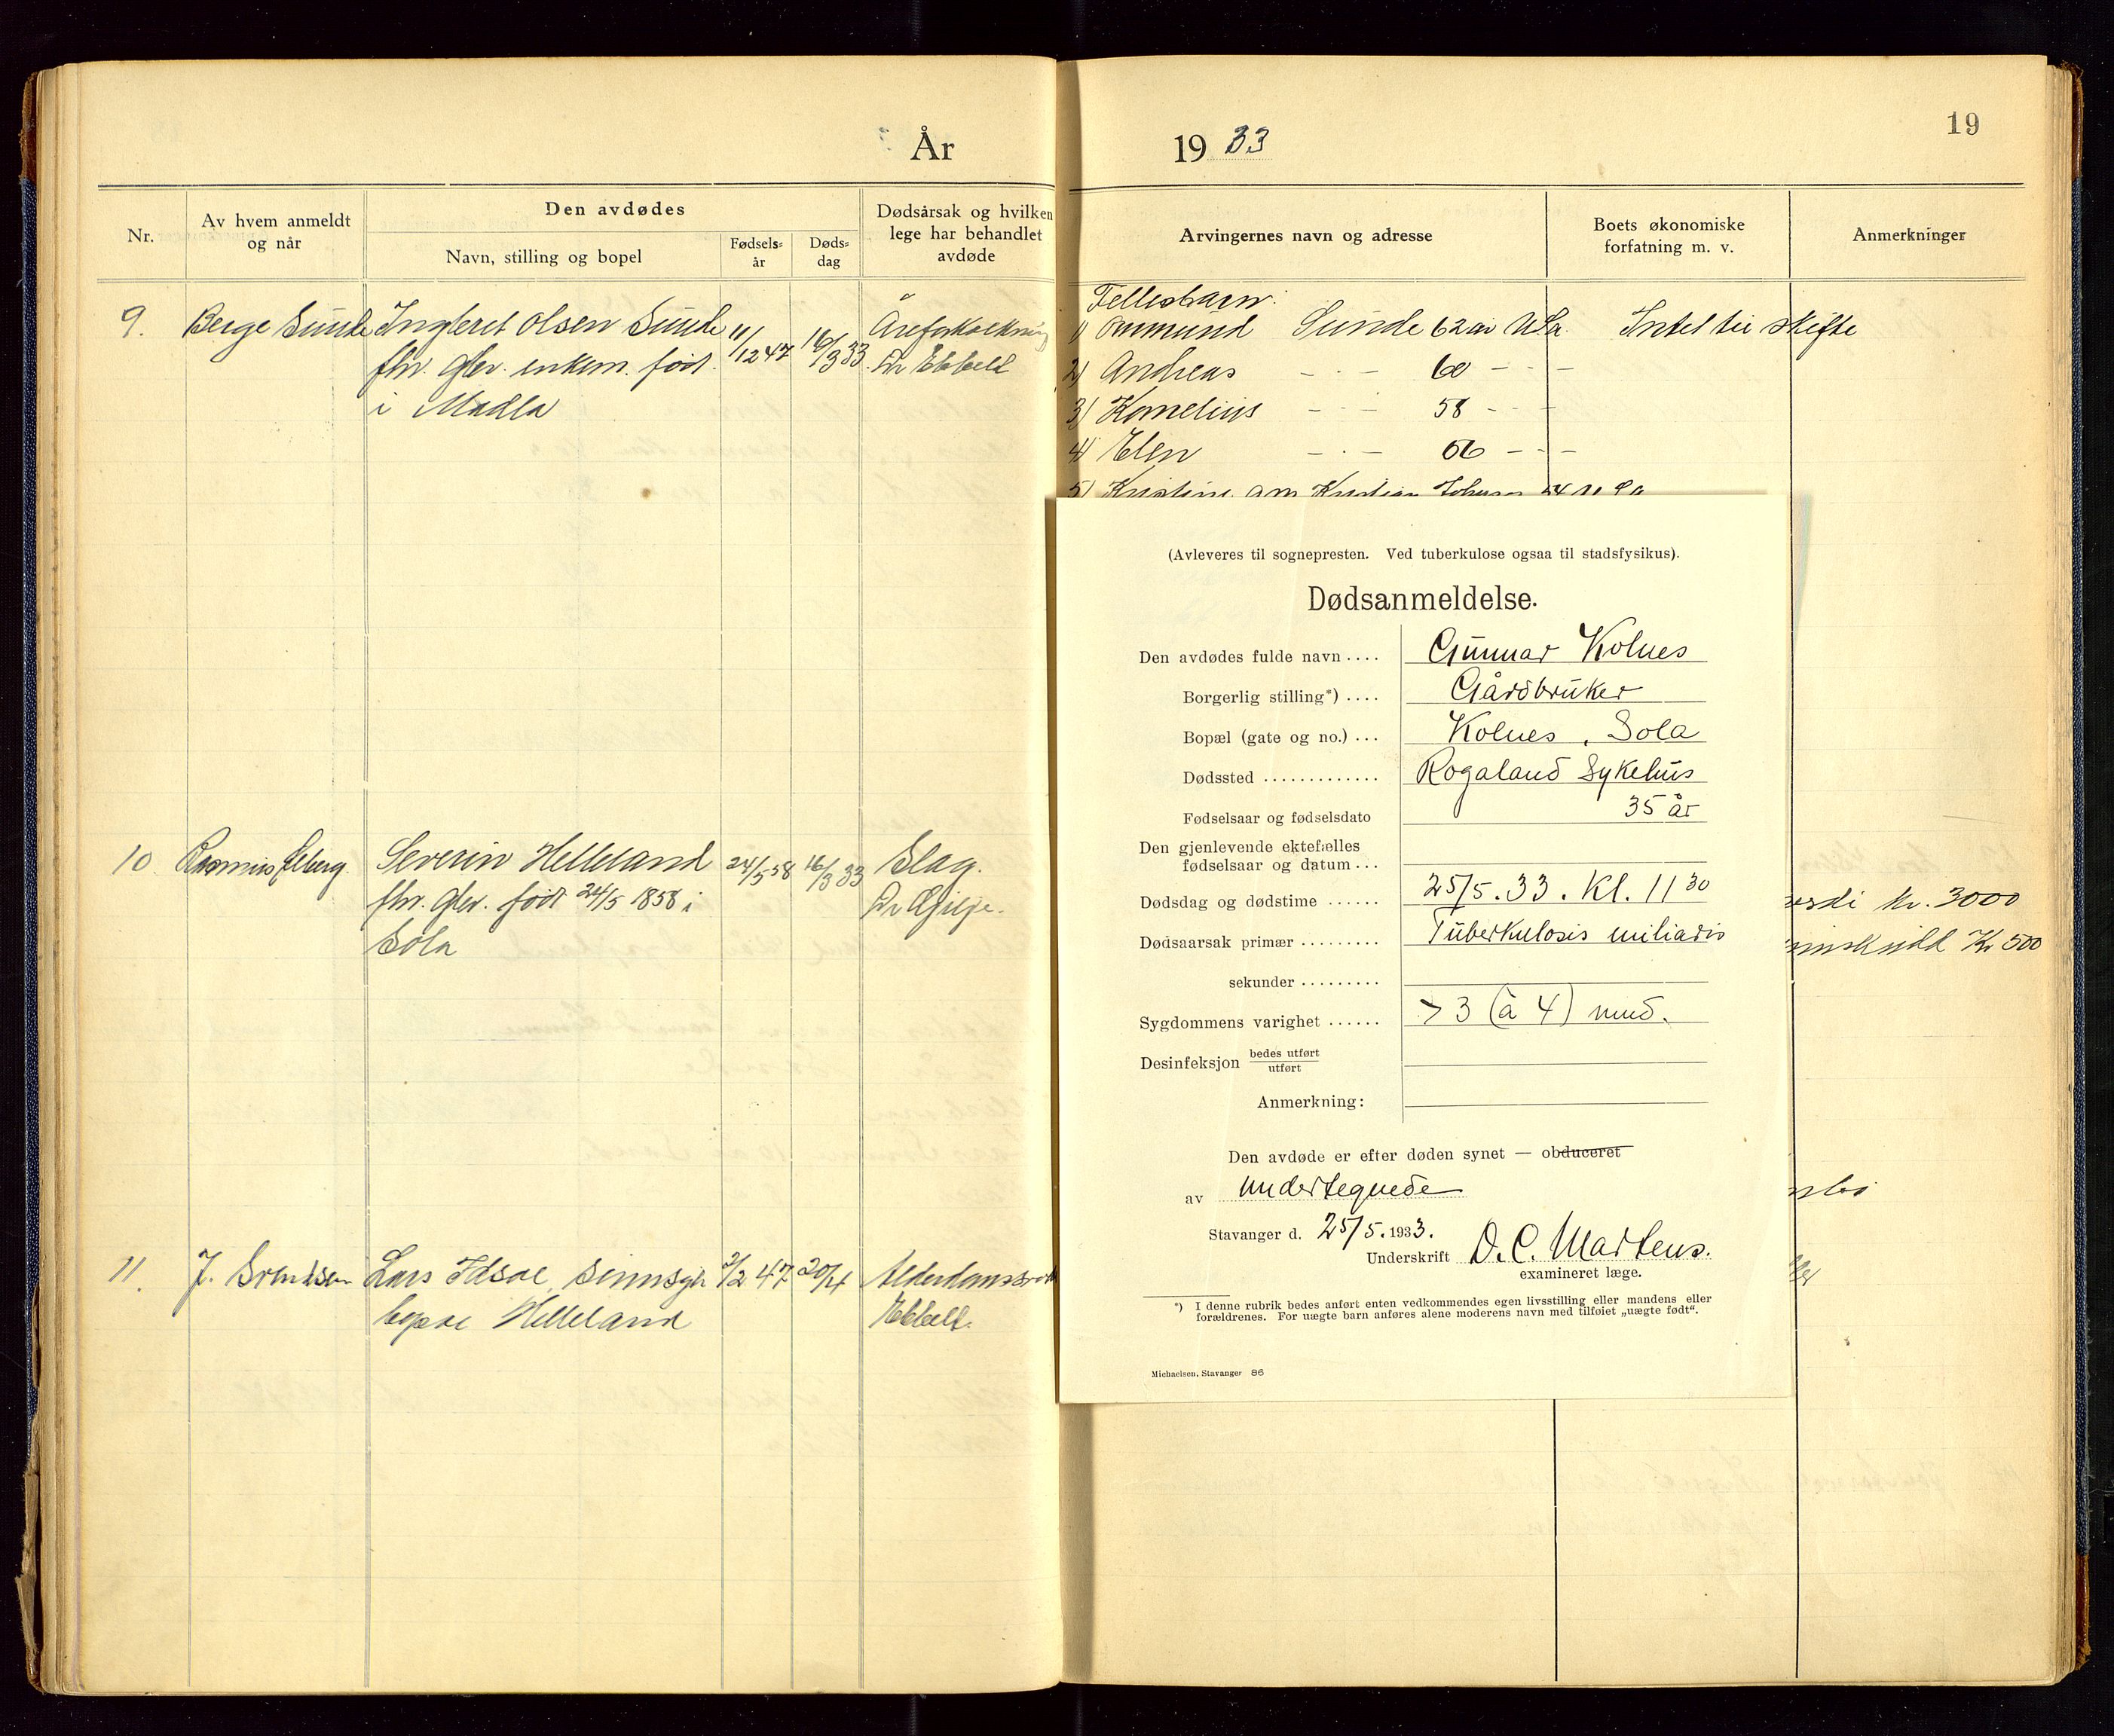 År
19 33
19
Nr.
Av hvem anmeldt
og når
Den avdødes
Navn, stilling og bopel
Fødsels=
år
Døds=
dag
Dødsårsak og hvilken
lege har behandlet
avdøde
Arvingernes navn og adresse
Boets økonomiske
forfatning m. v.
Anmerkninger
9.
Berge Sunde
Ingleret Olsen Sunde
fhv. gbr. enkem. født
i Madla
11/12 47
16/3 33
Åreforkalkning
Dr Ebbell
Fellesbarn:
1) Ommund Sunde 62 år USa
Intet til skifte
2) Andreas - · - 60 - · -
3) Kornelius - · - 58 - · -
4) Elen - · - 56 - · -
5) Kristine gm Kristian Johnson 54
10
Rasmus
Severin Helleland
fhv. gbr. født 24/5 1858 i
Sola
24/5 58
16/3 33
Slag.
Dr Gilje.
kr. 3000
Kr 500
11.
J. Svendsen
Lars Idsøe, sinnsyk
bopæl Helleland
2/2 47
20/4
Ebbell.
(Avleveres til sognepresten. Ved tuberkulose ogsaa til stadsfysikus).
Dødsanmeldelse.
Den avdødes fulde navn .... Gunnar Kolnes
Borgerlig stilling*) .... Gårdbruker
Bopæl (gate og no.) ... Kolnes, Sola
Dødssted ............. Rogaland Sykehus
Fødselsaar og fødselsdato 35 år
Den gjenlevende ektefælles
fødselsaar og datum ...
Dødsdag og dødstime ...... 25/5. 33. Kl. 11 30
Dødsaarsak primær ......... Tuberkulosis miliaris
sekunder .........
Sygdommens varighet ...... > 3 (à 4) mnd.
Desinfeksjon bedes utført
utført
Anmerkning:
Den avdøde er efter døden synet — obduceret
av undertegnede
Stavanger d. 25/5. 1933.
Underskrift D. C. Martens.
examineret læge.
*) I denne rubrik bedes anført enten vedkommendes egen livsstilling eller mandens eller
forældrenes. For uægte barn anføres alene moderens navn med tilføiet „uægte født“.
Michaelsen, Stavanger 86